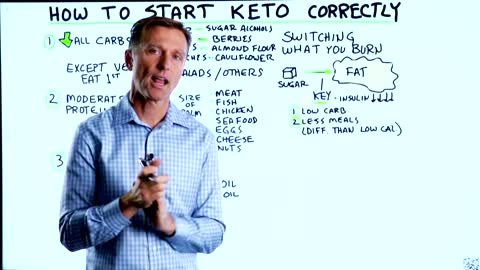 HOW TO START KETO CORRECTLY
1 ALL CARB
- SUGAR ALCOHOLS
- BERRIES
- ALMOND FLOUR
- CAULIFLOWER
EXCEPT
EAT 1ST
SALADS / OTHERS
2
SIZE
OF
MEAT
FISH
CHICKEN
SEAFOOD
EGGS
CHEESE
NUTS
3
OIL
OIL
SWITCHING
WHAT YOU BURN
SUGAR
FAT
KEY - INSULIN ↓↓↓↓
1 LOW CARB
2 LESS MEALS
(DIFF. THAN LOW CAL)